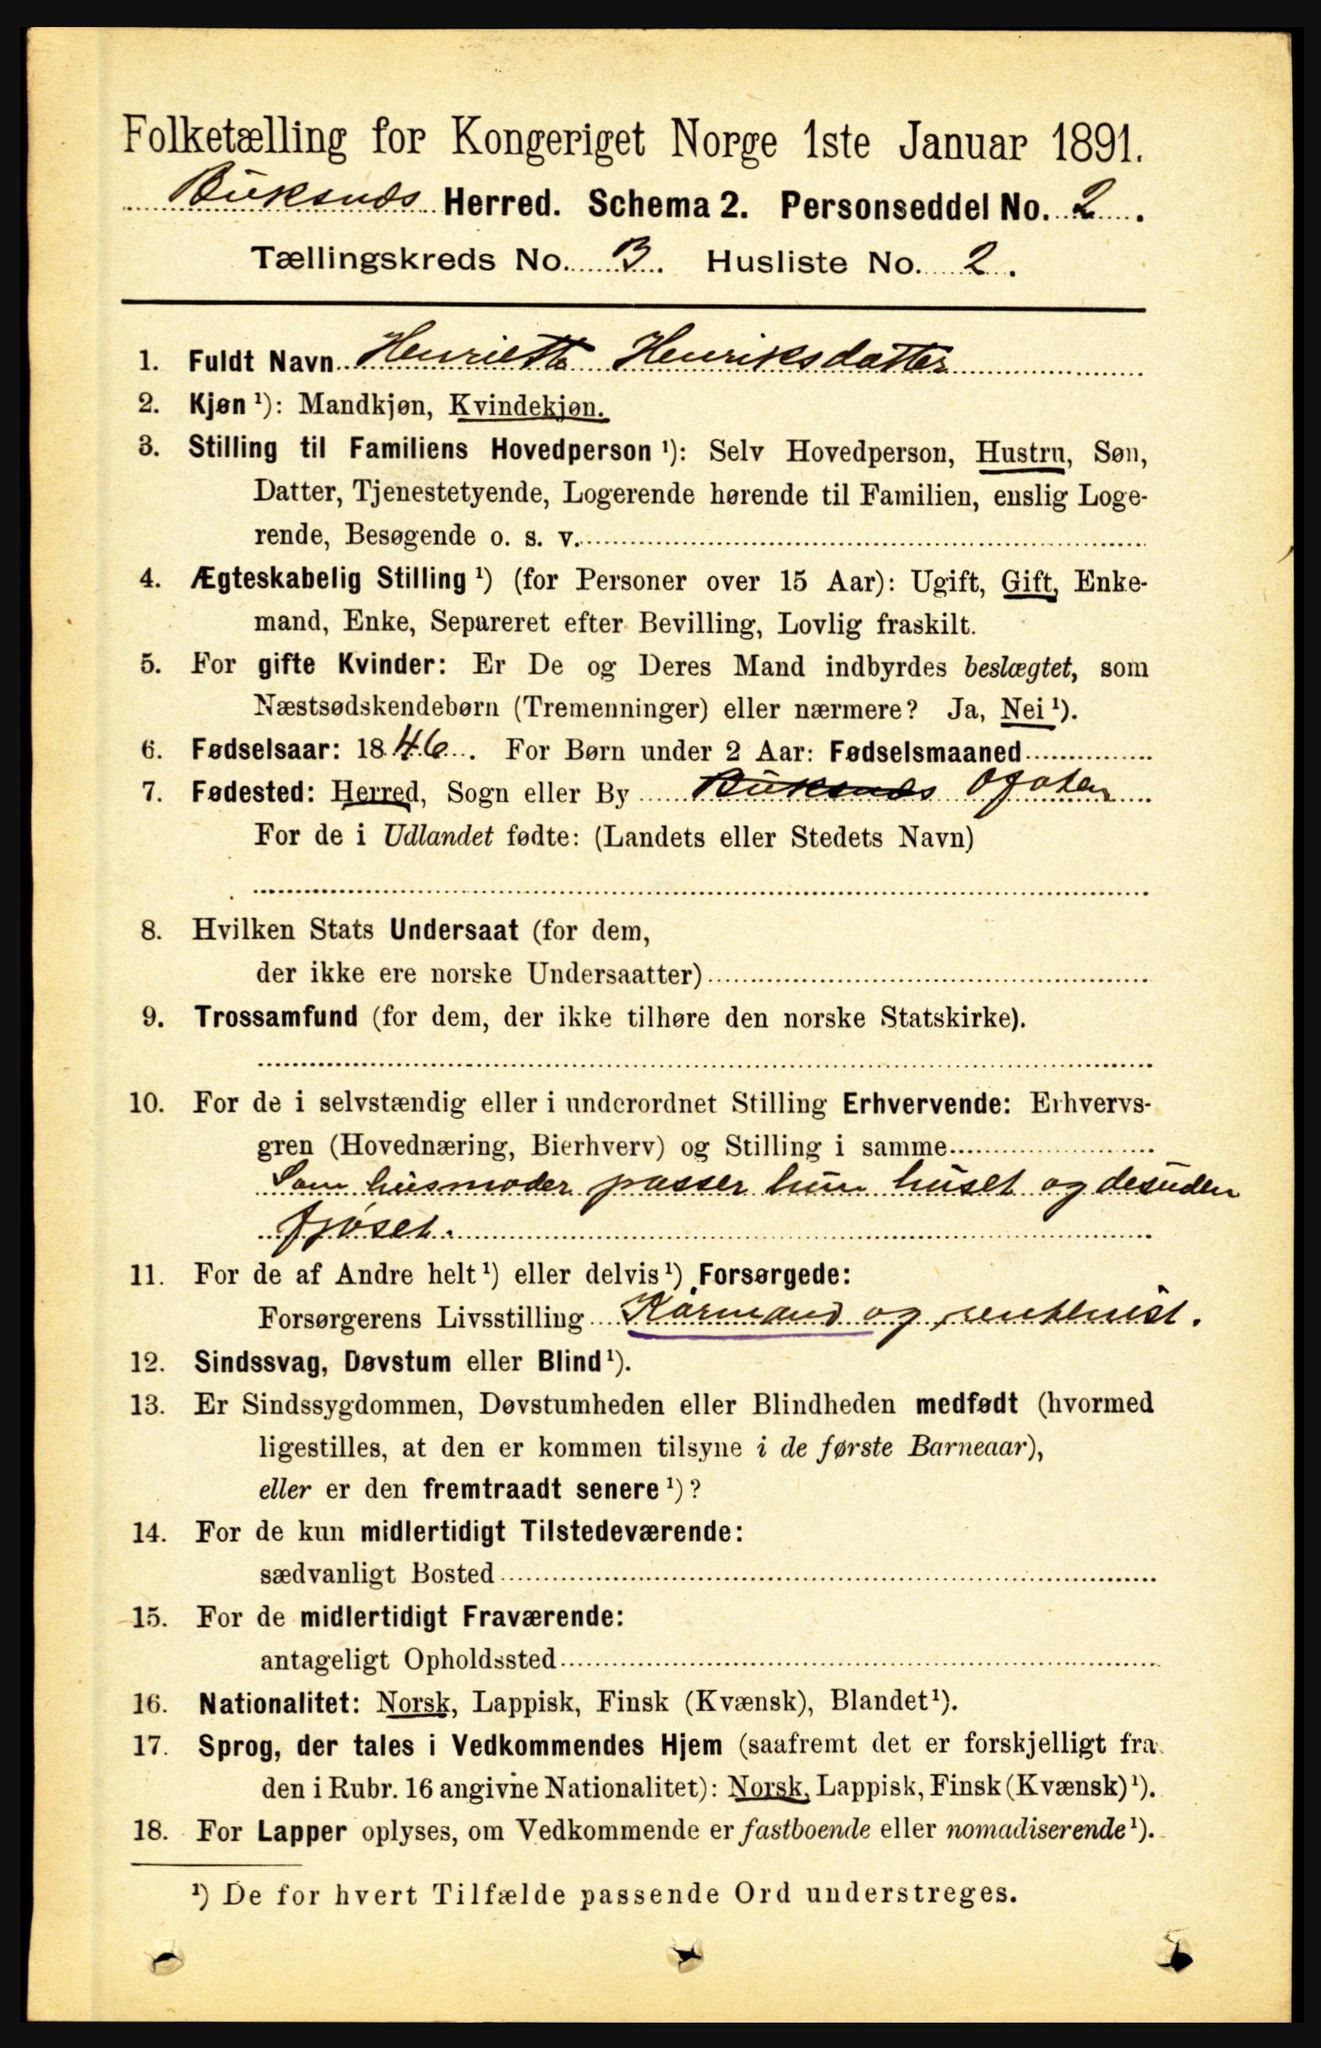 Folketælling for Kongeriget Norge 1ste Januar 1891.
Buksnes Herred. Schema 2. Personseddel No. 2.
Tællingskreds No. 3. Husliste No. 2.
1. Fuldt Navn Henriette Henriksdatter
2. Kjøn ¹): Mandkjøn, Kvindekjøn.
3. Stilling til Familiens Hovedperson ¹): Selv Hovedperson, Hustru, Søn,
Datter, Tjenestetyende, Logerende hørende til Familien, enslig Loge-
rende, Besøgende o. s. v.
4. Ægteskabelig Stilling ¹) (for Personer over 15 Aar): Ugift, Gift, Enke-
mand, Enke, Separeret efter Bevilling, Lovlig fraskilt.
5. For gifte Kvinder: Er De og Deres Mand indbyrdes beslægtet, som
Næstsødskendebørn (Tremenninger) eller nærmere? Ja, Nei ¹).
6. Fødselsaar: 1846. For Børn under 2 Aar: Fødselsmaaned
7. Fødested: Herred, Sogn eller By Buksnes Ofoten
For de i Udlandet fødte: (Landets eller Stedets Navn)
8. Hvilken Stats Undersaat (for dem,
der ikke ere norske Undersaatter)
9. Trossamfund (for dem, der ikke tilhøre den norske Statskirke).
10. For de i selvstændig eller i underordnet Stilling Erhvervende: Erhvervs-
gren (Hovednæring, Bierhverv) og Stilling i samme
Som husmoder passer hun huset og desuden
fjøset.
11. For de af Andre helt ¹) eller delvis ¹) Forsørgede:
Forsørgerens Livsstilling Kårmand og rentenist.
12. Sindssvag, Døvstum eller Blind ¹).
13. Er Sindssygdommen, Døvstumheden eller Blindheden medfødt (hvormed
ligestilles, at den er kommen tilsyne i de første Barneaar),
eller er den fremtraadt senere ¹)?
14. For de kun midlertidigt Tilstedeværende:
sædvanligt Bosted
15. For de midlertidigt Fraværende:
antageligt Opholdssted
16. Nationalitet: Norsk, Lappisk, Finsk (Kvænsk), Blandet ¹).
17. Sprog, der tales i Vedkommendes Hjem (saafremt det er forskjelligt fra
den i Rubr. 16 angivne Nationalitet): Norsk, Lappisk, Finsk (Kvænsk) ¹).
18. For Lapper oplyses, om Vedkommende er fastboende eller nomadiserende ¹).
¹) De for hvert Tilfælde passende Ord understreges.